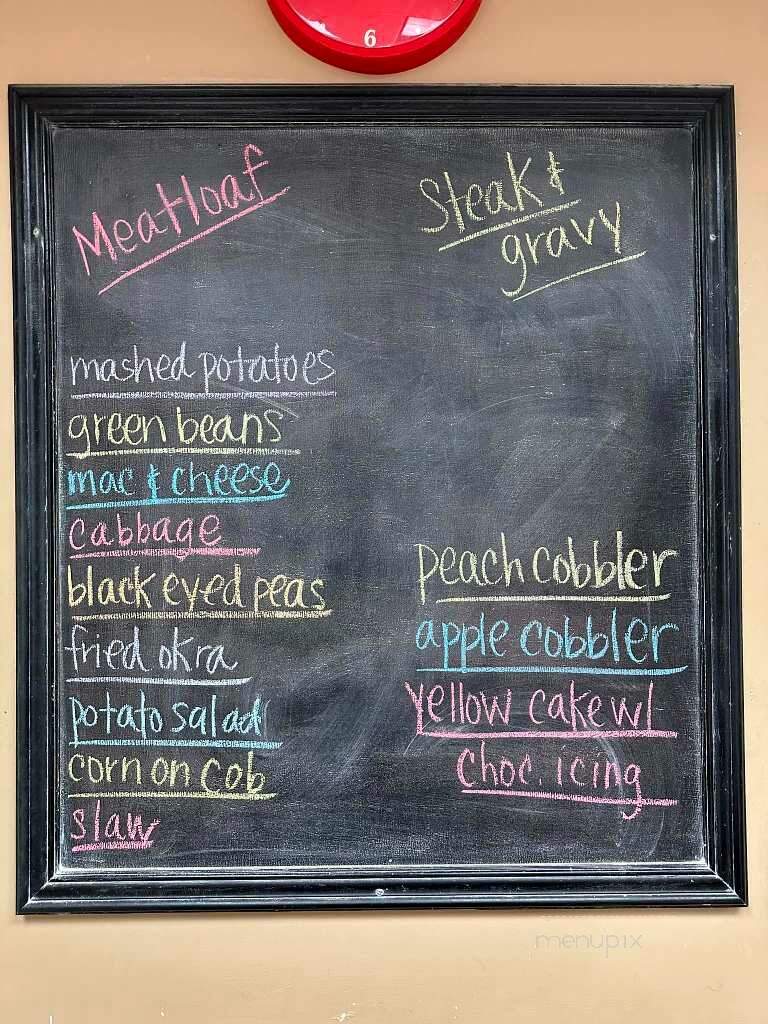 6
Meatloaf
Steak &
gravy
mashed potatoes
green beans
mac & cheese
cabbage
black eyed peas
fried okra
potato salad
corn on cob
slaw
peach cobbler
apple cobbler
yellow cake w/
choc. icing
menupix